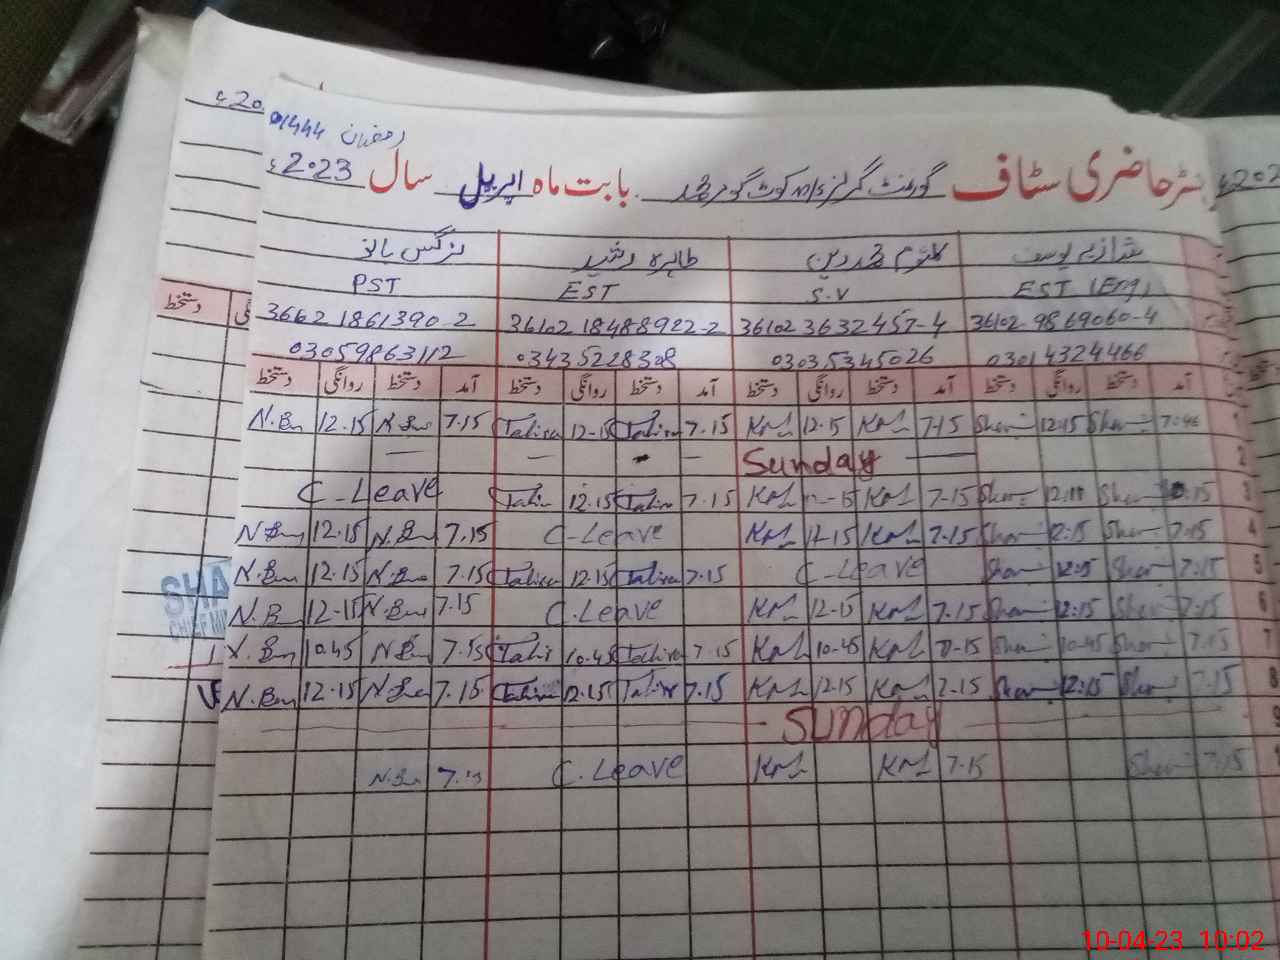 رمضان 1444
رجسٹر حاضری سٹاف گورنمنٹ گرلز بابت ماہ اپریل سال 2023ء
شازیہ یوسف طاہرہ رشید نرگس بانو
EST (Eng) S.V EST PST
36102 9869060-4 36102 3632457-4 36102 18488922-2 36621861390-2
03014324466 03035345026 03435228308 03059863112
آمد دستخط روانگی دستخط آمد دستخط روانگی دستخط آمد دستخط روانگی دستخط آمد دستخط روانگی دستخط
N.Bn 12.15 N.Bn 7.15 Tahira 12-15 Tahira 7.15 12.15 7-15 Sham 12.15 Sham 7.46 1
Sunday 2
C-Leave Tahir 12.15 Tahira 7.15 12-15 7-15 Sham Sham 3
N.Bn 12.15 N.Bn 7.15 C-Leave 12-15 7.15 Sham 12.15 Sham 7.15 4
N.Bn 12.15 N.Bn 7.15 Tahira 12.15 Tahira 7.15 C-Leave Sham 12.15 Sham 7.15 5
N.B 12-15 N.Bn 7.15 C.Leave 12-15 7.15 Sham 12.15 Sham 7.15 6
N.Bn 10.45 N.Bn 7.15 Tahir 10.45 Tahira 7.15 10-45 7-15 Sham 10-45 Sham 7.15 7
N.Bn 12.15 N.Bn 7.15 Tahira 12.15 Tahira 7.15 12.15 7.15 Sham 12.15 Sham 7.15 8
Sunday 9
N.Bn 7.15 C.Leave 7.15 Sham 7.15
دستخط
SHA
10-04-23 10:02